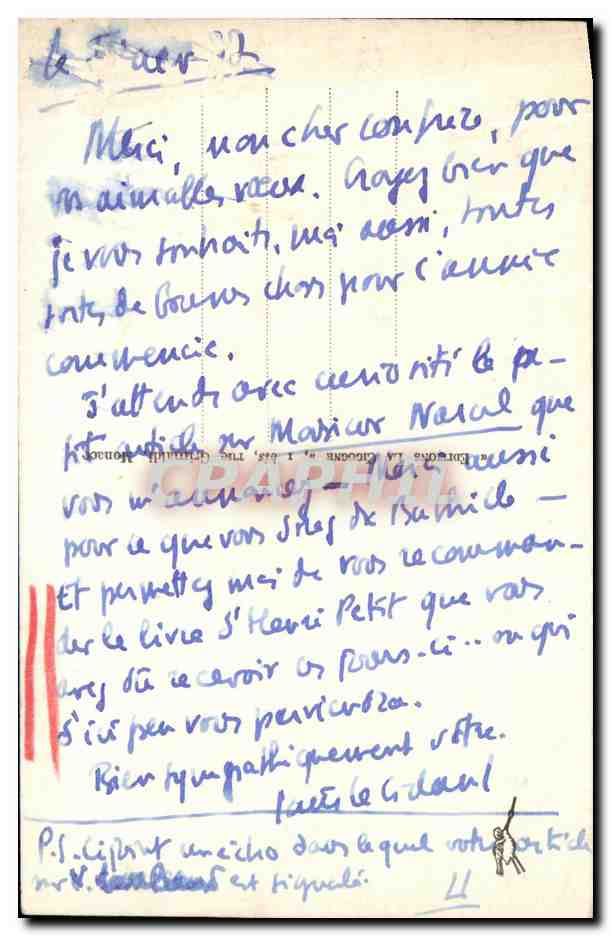 Merci, mon cher confrère, pour
vos aimables vœux. Croyez bien que
je vous souhaite, moi aussi, toutes
sortes de bonnes choses pour l'année
commencée.
J'attends avec curiosité le pe-
tit article sur Monsieur que
« EDITIONS LA CIGOGNE », 1 bis, rue Grimaldi, Monaco
vous m'annoncez — Merci aussi
pour ce que vous dites de —
Et permettez moi de vous recomman-
der le livre d'Henri Petit que vous
avez dû recevoir ces jours-ci.. ou qui
d'ici peu vous parviendra.
Bien sympathiquement vôtre.
P.S. Ci-joint un écho dans lequel votre article
sur V. est signalé.
CPAPHIL